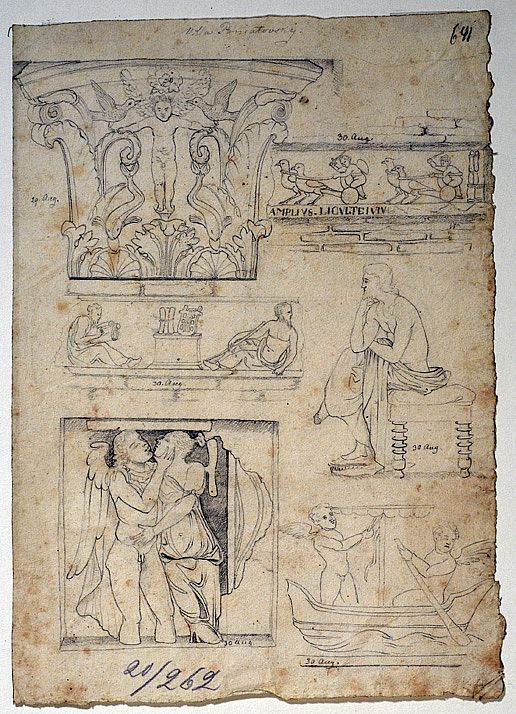 Villa Poniatovsky
641
30. Aug.
30. Aug.
AMPLIVS. LIQVETEIVIV
30. Aug.
30 Aug.
30 Aug.
30 Aug.
20/262